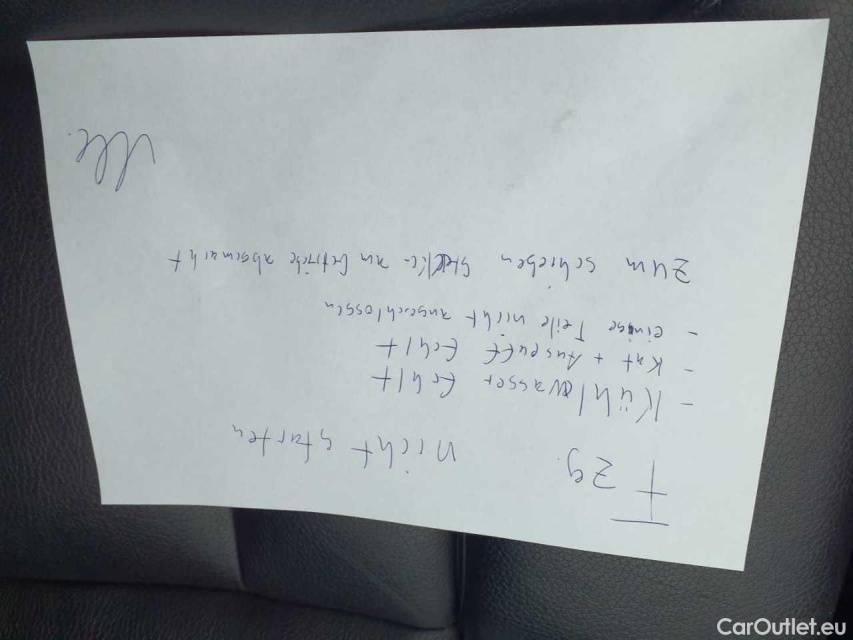 Fzg. nicht starten
- Kühlwasser fehlt
- Kat + Auspuff fehlt
- einige Teile nicht angeschlossen
zum schieben an Getriebe abgemacht
CarOutlet.eu